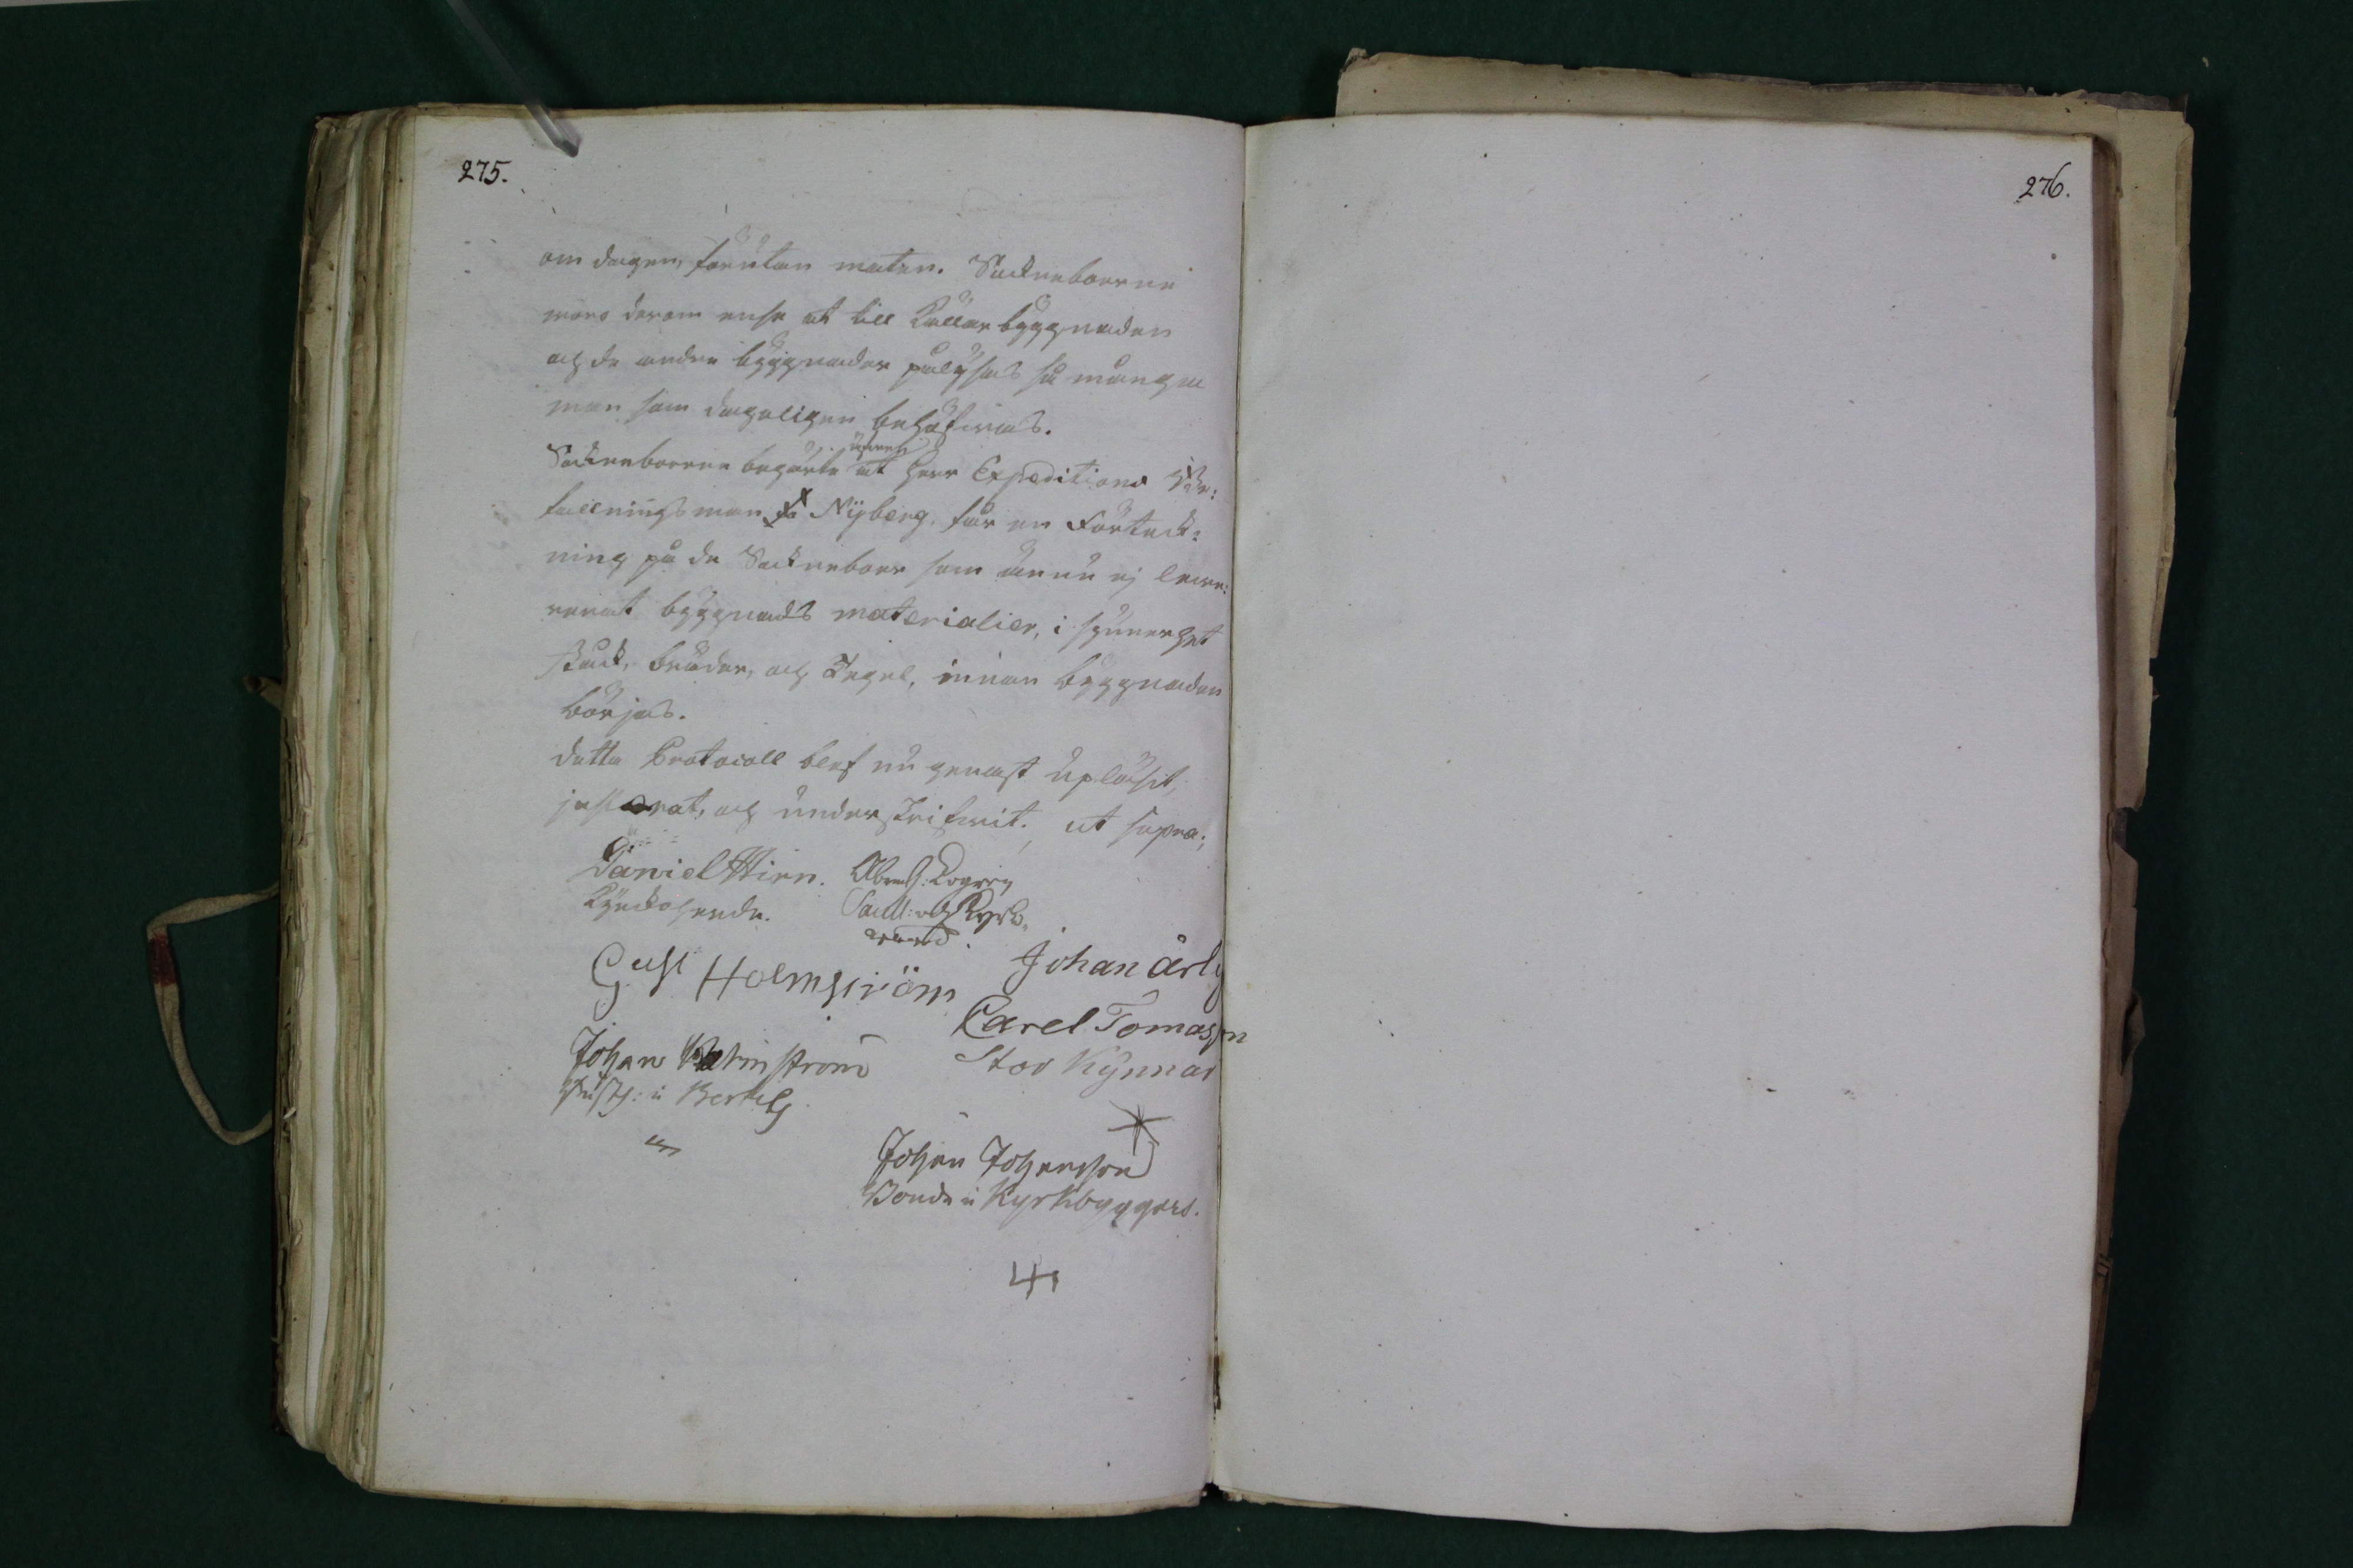 275.
276.
om dagen, förutan maten. Sockneboerne
woro derom ense at till Källar byggnaden
och de andra byggnader pålysas så många
man som dageligen behöfwas.
äfwen
Sockneboerne begärte at Herr Expeditions
fallningsman Nÿberg, får en Förteck:
ning på de Sockneboer som ännu ej lewe:
rerat byggnads materialier, i synnerhet
stock, bräder, och Tegel, innan byggnaden
börjas.
detta Protocoll blef nu genast upläsit,
justerat, och underskrifwit. ut supra;
Daniel Hirn. Abrah:
Kyrckoherde.
Gust Holmström Johan ärl
Carel Tomasson
Johan Stor Kÿnnar
i Bertils
Johan Johansson
Bonde i Kyrkbyggars.